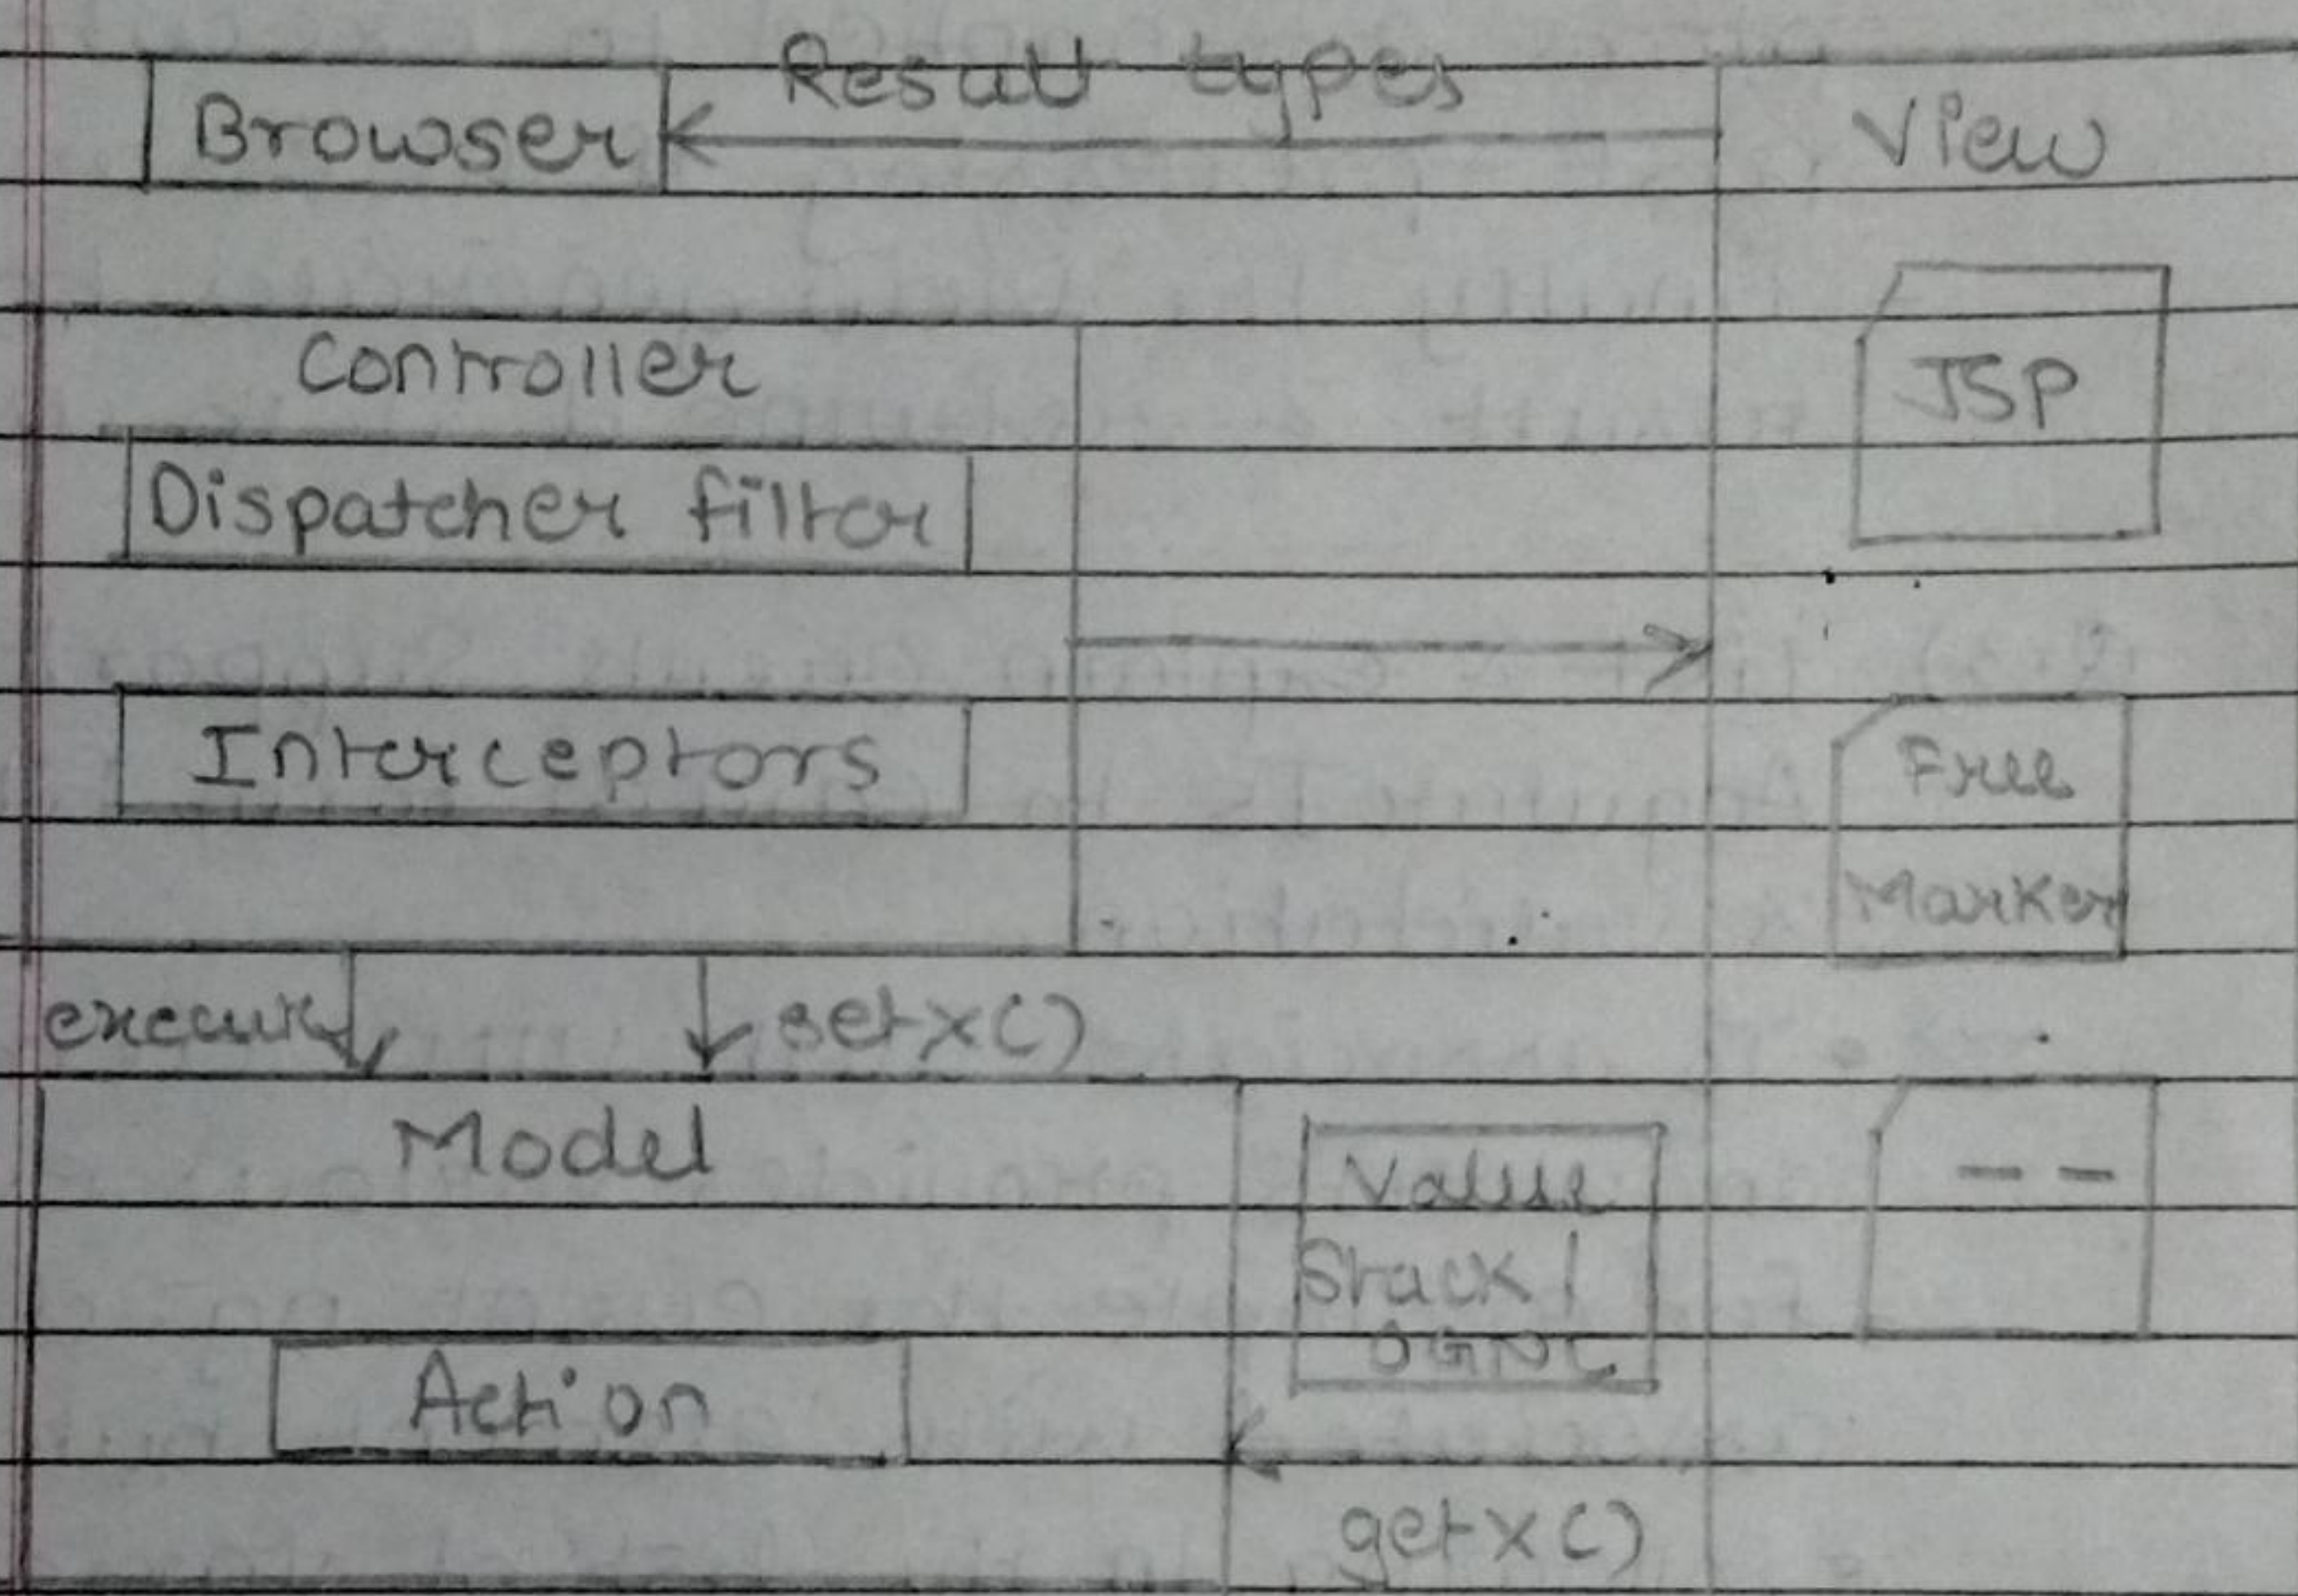 Result types
Browser
View
Controller
JSP
Dispatcher filter
Interceptors
Free
Marker
execute
setx()
Model
Value
Stack /
OGNL
--
Action
getx()